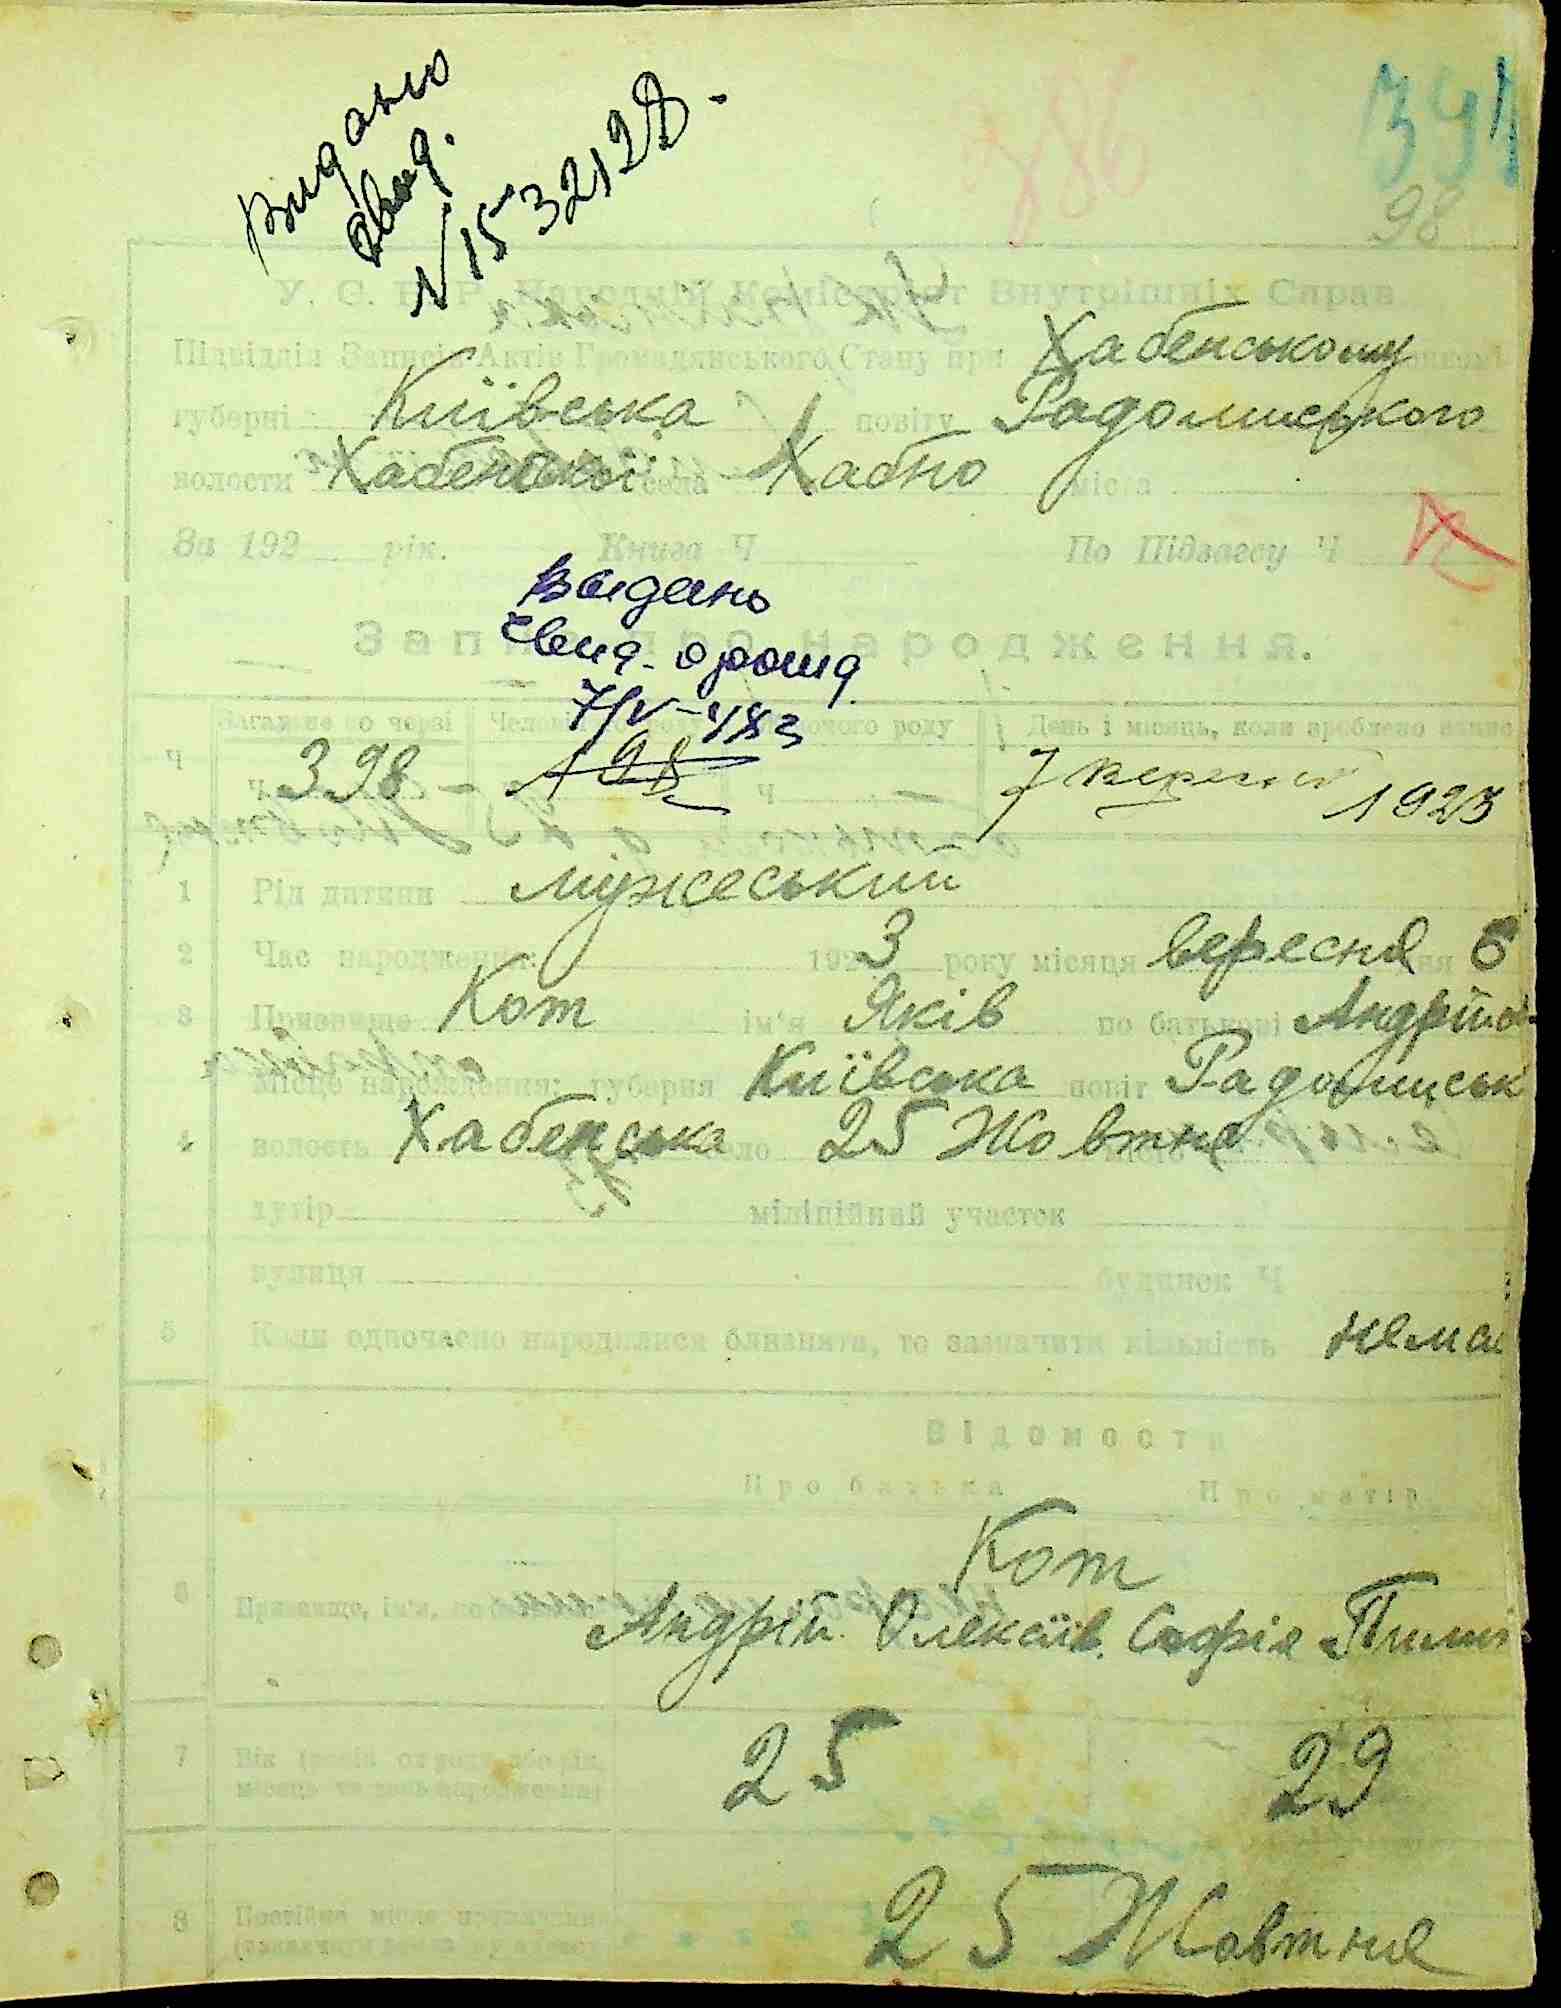 391
386
98
Видано
свид.
N 1532128.
У. С. Р. Р. Народній Комісаріят Внутрішніх Справ
Підвідділ Записів Актів Громадянського Стану при Хабенському
губерні Київська повіту Радомиського
волости Хабенської села Хабно міста
За 192 рік. Книга Ч По Підзагсу Ч
видано
свид. о рожд.
7/V-483
Запис про народження.
Загальне по черзі Чоловічого роду День і місяць, коли зроблено запис
Ч Ч 398 - 198 Ч - 7 вересня 1923
1 Рід дитини мужеський
2 Час народження: 1923 року місяця вересня дня 6
3 Прізвище Кот ім'я Яків по батькові Андрійов
Місце народження: губерня Київська повіт Радомиськ
4 волость Хабенська село 25 Жовтня місто
хутір міліційний участок
вулиця будинок Ч
5 Коли одночасно народилися близнята, то зазначити кількість нема
Відомости
Про батька Про матір
Кот
6 Прізвище, ім'я, по батькові Андрій Олексіїв. Софія Пилип
7 Вік (років от роду або рік, місяць та день народження) 25 29
8 Постійне місце 25 Жовтня